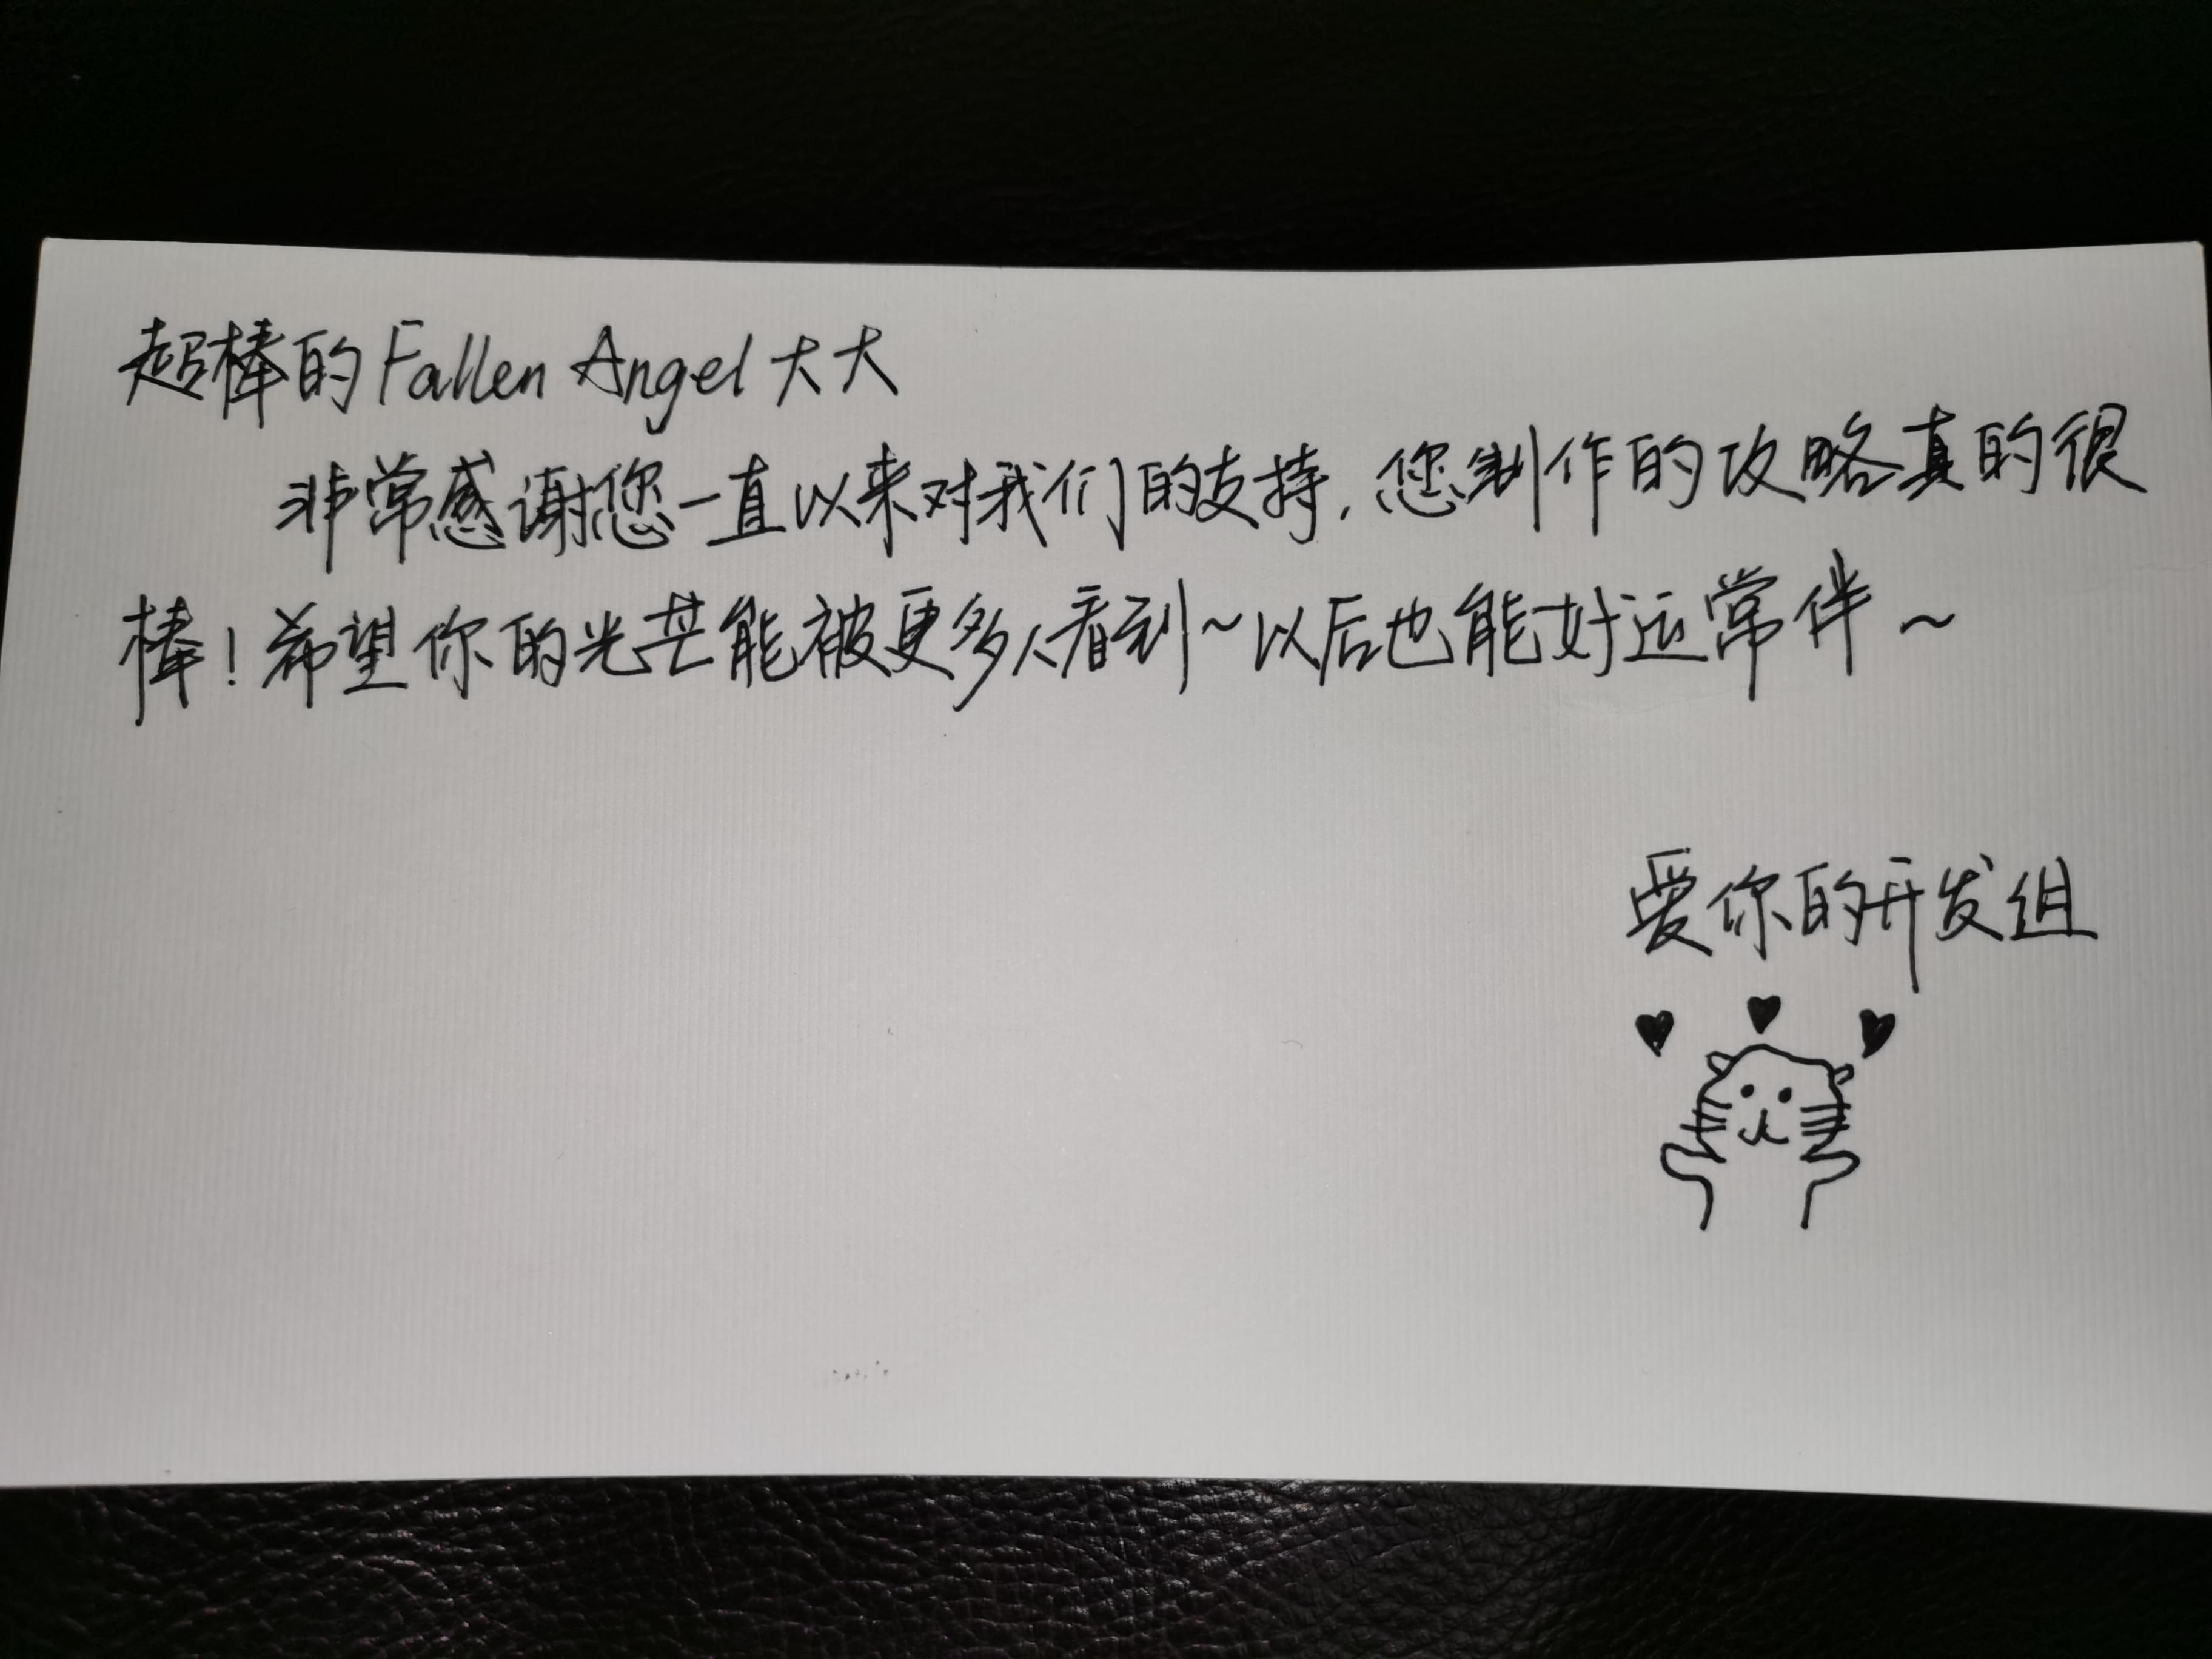 超棒的Fallen Angel大大
非常感谢您一直以来对我们的支持，您制作的攻略真的很
棒！希望你的光芒能被更多人看到~以后也能好运常伴~
爱你的开发组